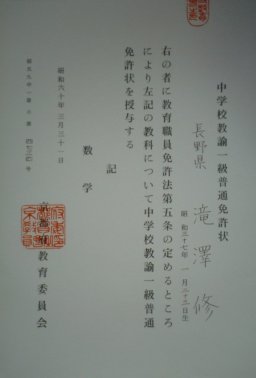 中学校教諭一級普通免許状
長野県
滝澤修
昭和三十七年一月二十三日生
右の者に教育職員免許法第五条の定めるところ
により左記の教科について中学校教諭一級普通
免許状を授与する
記
数学
昭和六十年三月三十一日
教育委員会